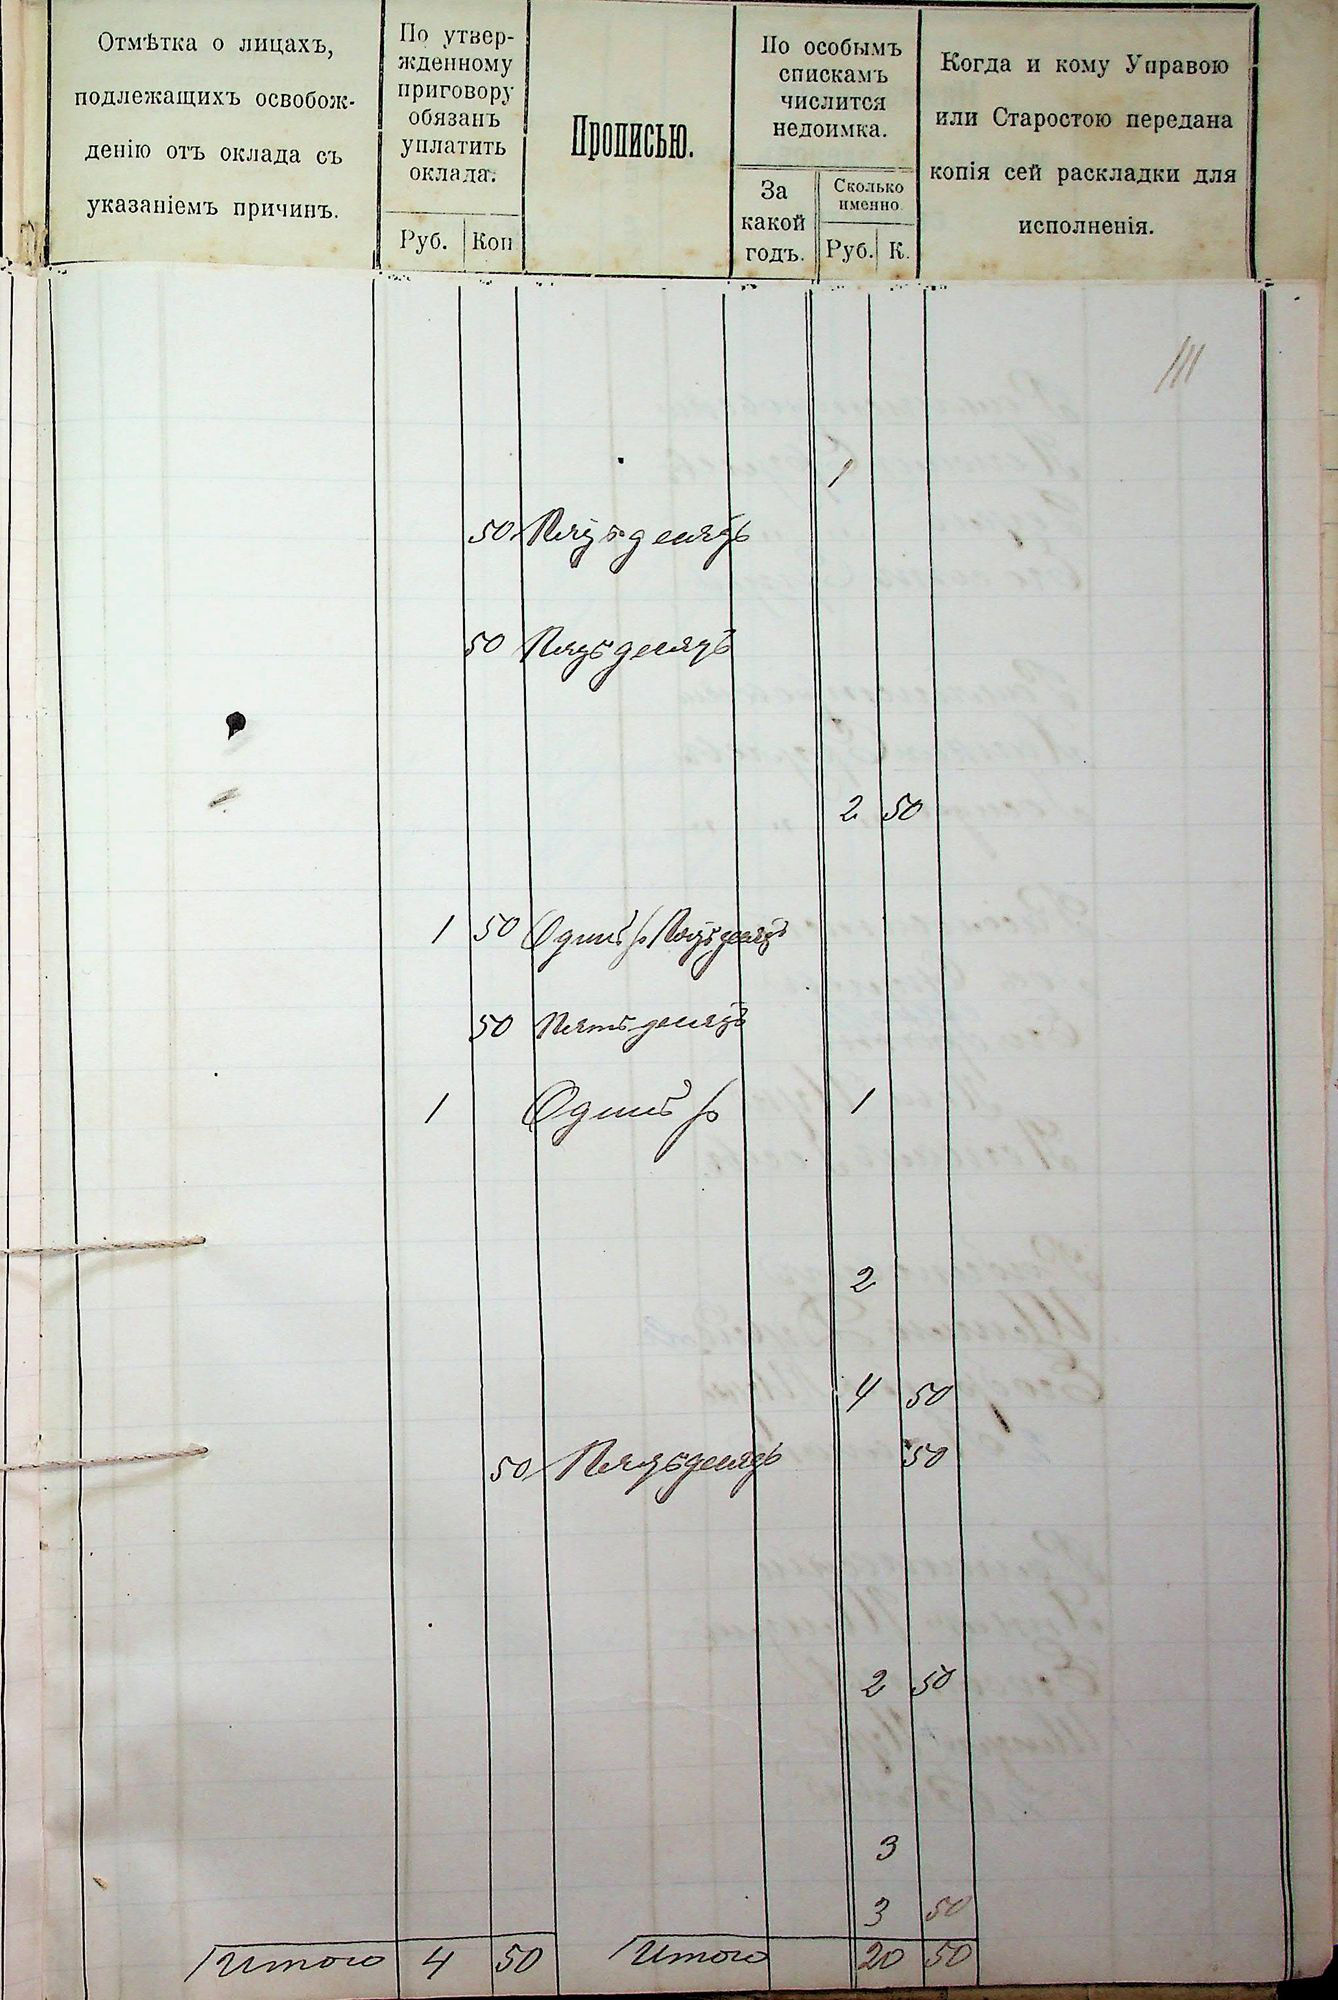 Отмѣтка о лицахъ,
подлежащихъ освобож-
денію отъ оклада съ
указаніемъ причинъ.
По утвер-
жденному
приговору
обязанъ
уплатить
оклада.
Руб. Коп
Прописью.
По особымъ
спискамъ
числится
недоимка.
За
какой
годъ.
Сколько
именно
Руб. К.
Когда и кому Управою
или Старостою передана
копія сей раскладки для
исполненія.
111
1
50 Пятьдесятъ
50 Пятьдесятъ
2 50
1 50 Одинъ р Пятьдесятъ
50 Пятьдесятъ
1 Одинъ р 1
2
4 50
50 Пятьдесятъ 50
2 50
3
3 50
Итого 4 50 Итого 20 50